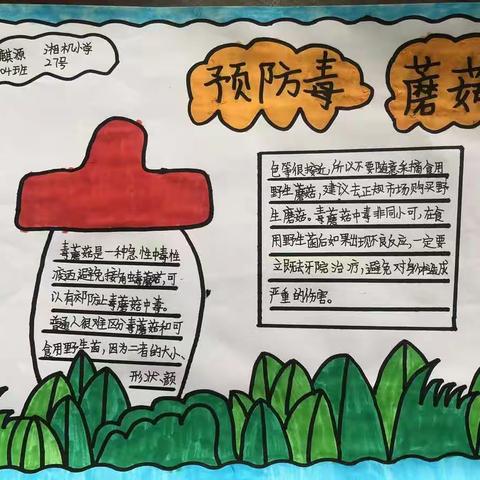 麒源 湘机小学
04班 27号
预防毒
蘑菇
毒蘑菇是一种急性中毒性
疾病,避免接触毒蘑菇,可
以有效防止毒蘑菇中毒。
普通人很难区分毒蘑菇和可
食用野生菌,因为二者的大小、
形状、颜
色等很接近,所以不要随意采摘食用
野生蘑菇,建议去正规市场购买野
生蘑菇。毒蘑菇中毒非同小可,在食
用野生菌后如果出现不良反应,一定要
立即去牙院治疗,避免对身体造成
严重的伤害。